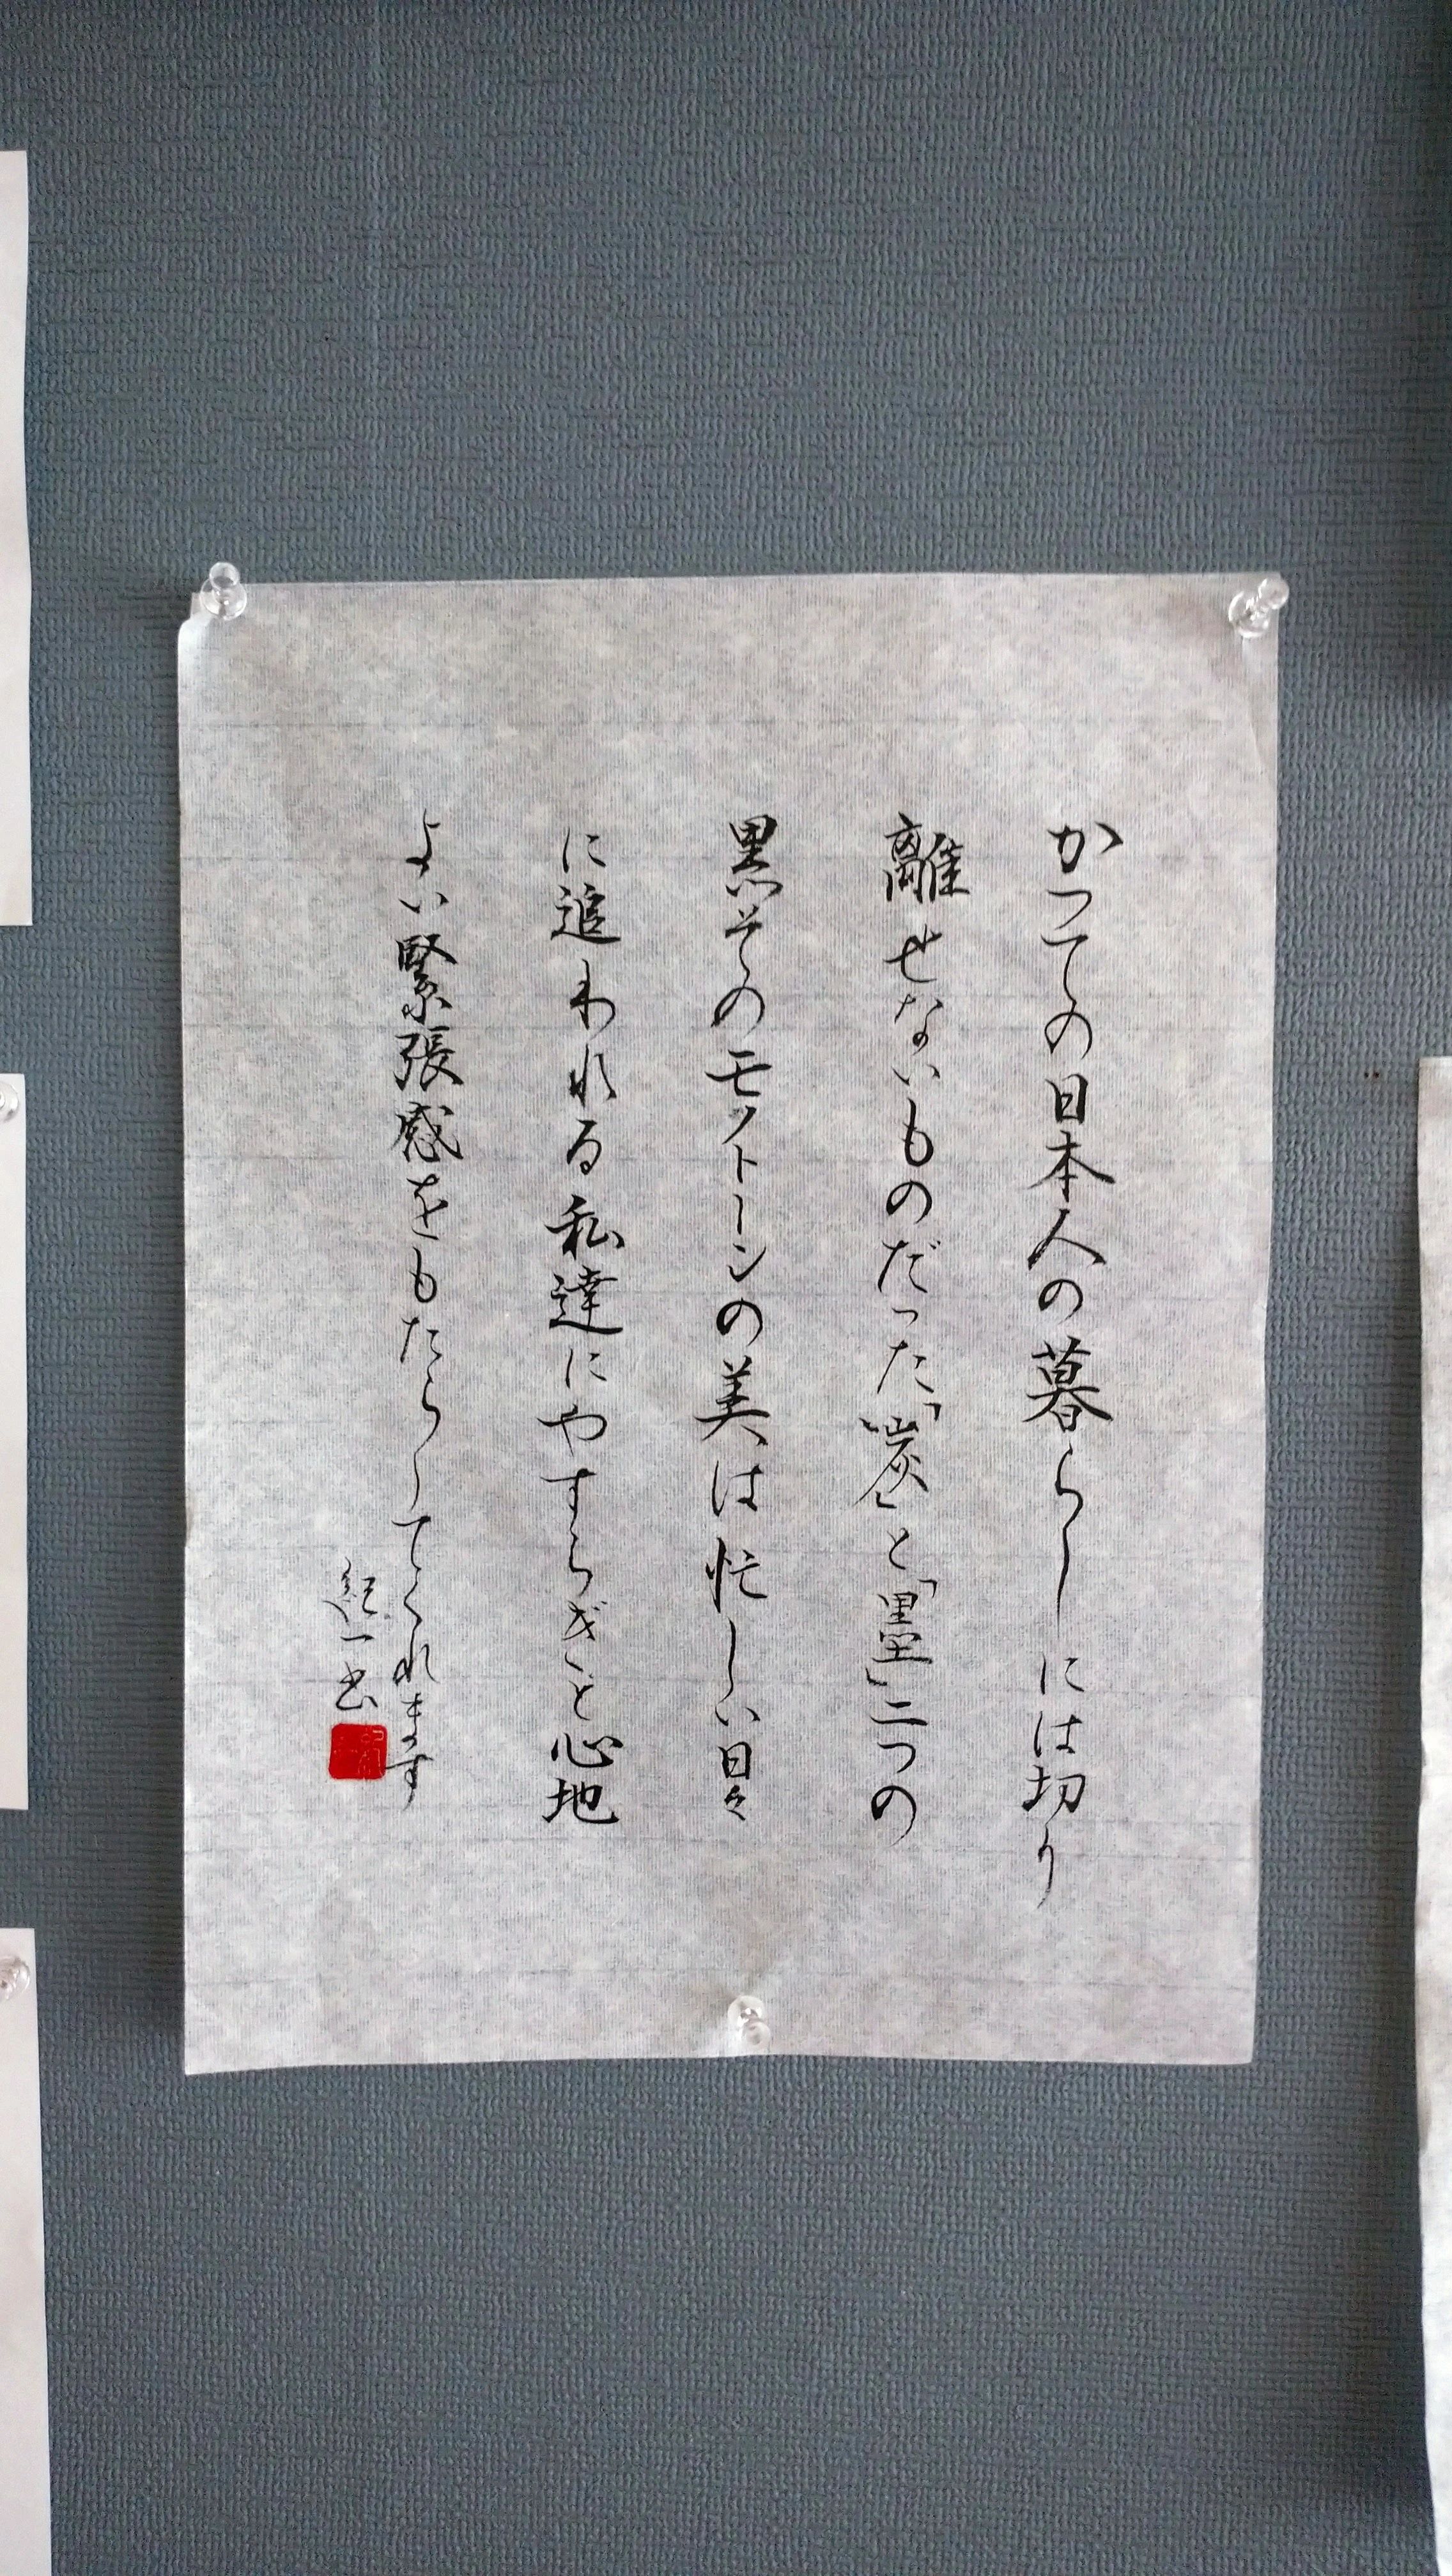 かつての日本人の暮らしには切り
離せないものだった「炭」と「墨」二つの
黒そのモノトーンの美は忙しい日々
に追われる私達にやすらぎと心地
よい緊張感をもたらしてくれます
一書